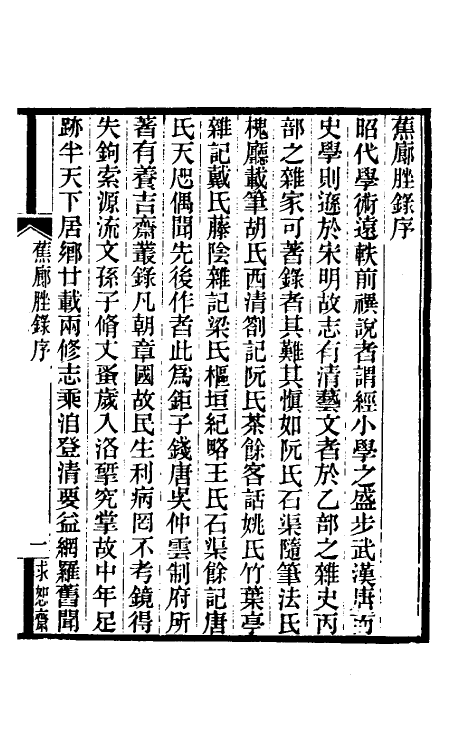 蕉廊脞錄序
昭代學術遠軼前禩說者謂經小學之盛步武漢唐而
史學則遜於宋明故志有清藝文者於乙部之雜史丙
部之雜家可著錄者其難其愼如阮氏石渠隨筆法氏
槐廳載筆胡氏西清劄記阮氏茶餘客話姚氏竹葉亭
雜記戴氏藤陰雜記梁氏樞垣紀略王氏石渠餘記唐
氏天咫偶聞先後作者此爲鉅子錢唐吳仲雲制府所
著有養吉齋叢錄凡朝章國故民生利病罔不考鏡得
失鉤索源流文孫子脩丈蚤歲入洛揅究掌故中年足
跡半天下居鄕廿載兩修志乘洎登清要益網羅舊聞
蕉廊脞錄序
一
求恕齋